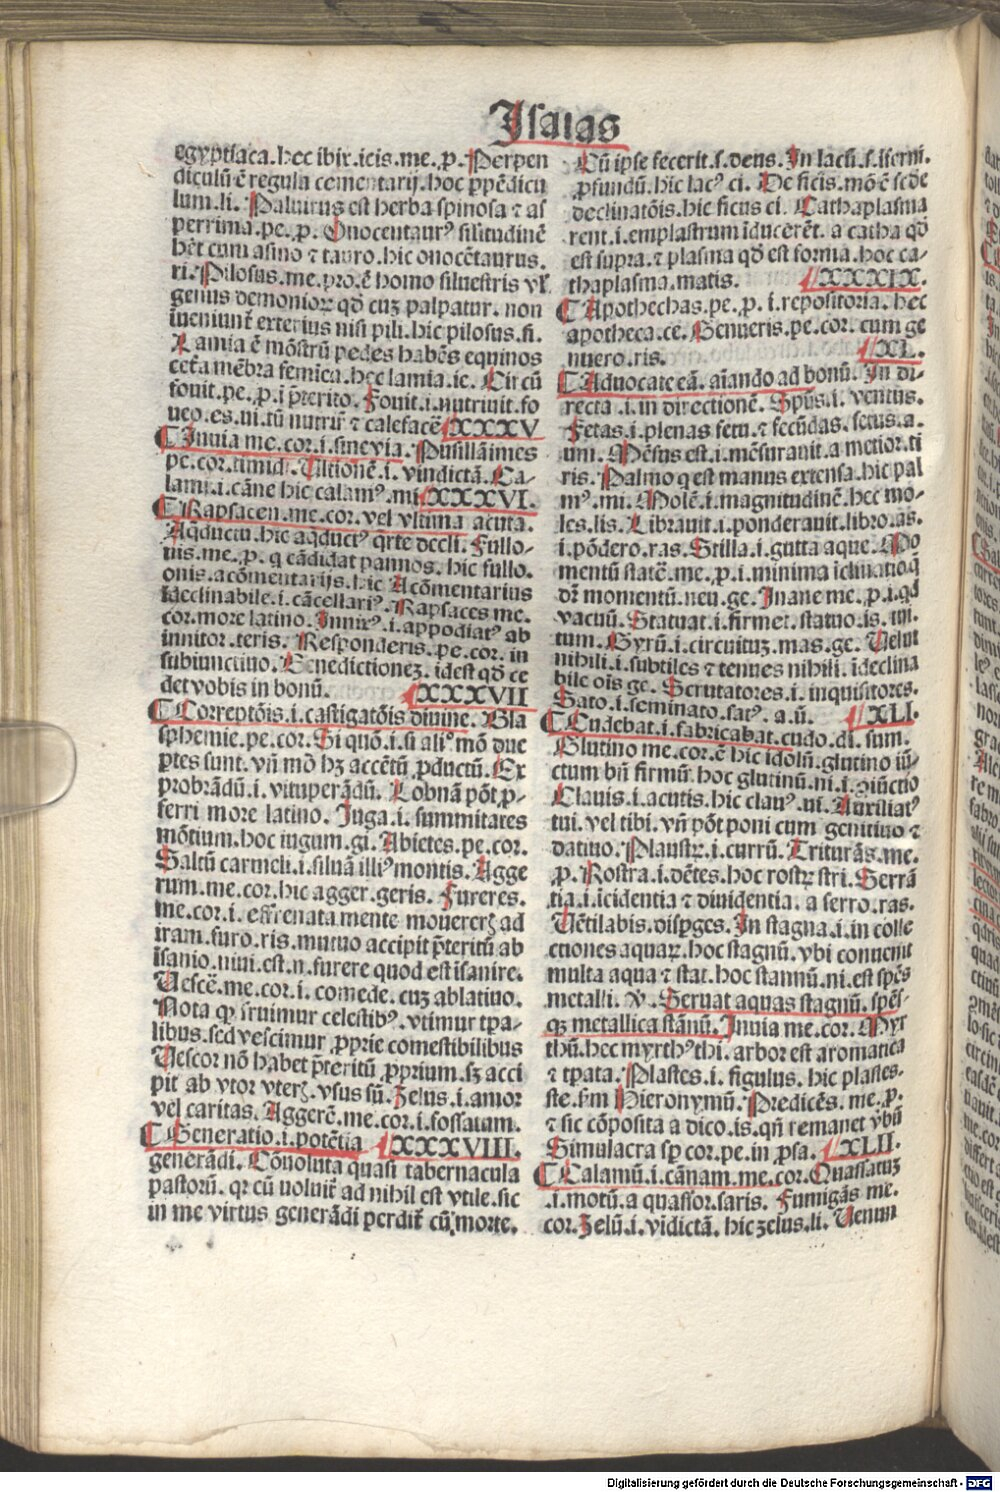 Isaias
egyptiaca.hec ibix.icis.me.ꝑ. Perpen
diculū ē regula cementarij.hoc ꝑpēdicu
lum.li. Paliurus est herba spinosa ⁊ as
perrima.pe.ꝑ. Onocentaurꝰ silitudinē
hēt cum asino ⁊ tauro.hic onocētaurus.
ri. Pilosus.me.pro.ē homo siluestris vł
genus demonioꝝ qđ cuꝫ palpatur. non
īueniunt̄ exterius nisi pili.hic pilosus.si.
Lamia ē mōstrū pedes habēs equinos
cet̄a mēbra femica.hec lamia.ie. Circū
fouit.pe.ꝑ.i p̄terito. Fouit.i.nutriuit.fo
ueo.es.ui.tū nutrir̄ ⁊ calefacē XXXV
Inuia me.cor.i.sine via. Pusillāimes
pe.cor.timidi. Ultionē.i.vindictā. Ca-
lami.i.cāne hic calamꝰ.mi XXXVI.
Rapsacen.me.cor.vel vltima acuta.
Aq̄ductu.hic aq̄ductꝰ q̄rte decli. Fullo-
nis.me.ꝑ.q cādidat pannos.hic fullo.
onis.acōmentarijs.hic Acōmentarius
īdeclinabile.i.cācellariꝰ. Rapsaces me.
cor.more latino. Innixꝰ.i.appodiatꝰ ab
innitor.teris. Responderis.pe.cor.in
subiunctiuo. Benedictioneꝫ.idest qđ ce
det vobis in bonū. XXXVII
Correptōis.i.castigatōis diuine. Bla
sphemie.pe.cor. Si quō.i.si aliº mō due
ꝑtes sunt. vñ mō hꝫ accētū ꝓductū. Ex
probrādū.i.vituperādū. Lobnā pōt ꝓ-
ferri more latino. Iuga.i.summitates
mōtium.hoc iugum.gi. Abietes.pe.cor.
Saltū carmeli.i.siluā illiꝰ montis. Agge
rum.me.cor.hic agger.geris. Fureres.
me.cor.i.effrenata mente mouererꝫ ad
iram.furo.ris.mutuo accipit p̄teritū ab
īsanio.niui.est.n.furere quod est īsanire.
Uescē.me.cor.i.comede.cuꝫ ablatiuo.
Nota ꝙ fruimur celestibꝰ.vtimur tꝑa-
libus.sed vescimur ꝓprie comestibilibus
Uescor nō habet p̄teritū ꝓprium.sꝫ acci
pit ab vtor vterꝫ.vsus sū. Zelus.i.amor
vel caritas. Aggerē.me.cor.i.fossatum.
Generatio.i.potētia XXXVIII.
generādi. Cōuoluta quasi tabernacula
pastorū.qꝛ cū voluit̄ ad nihil est vtile.sic
in me virtus generādi perdit̄ cū morte.
Cū ipse fecerit.s.deus. In lacū.s.iferni.
ꝓfundū.hic lacꝰ ci. De ficis.mō ē fede
declinatōis.hic ficus ci. Cathaplasma
rent.i.emplastrum īducerēt.a catha qđ
est supra.⁊ plasma qđ est forma.hoc ca-
thaplasma.matis. XXXIX.
Apothechas.pe.ꝑ.i.repositoria.hec
apotheca.ce. Genueris.pe.cor.cum ge
nuero.ris. XL.
Aduocate eā.aīando ad bonū. In di-
recta.i.in directionē. Spūs.i.ventus.
Fetas.i.plenas fetu.⁊ fecūdas.fetus.a.
um. Mēsus est.i.mēsurauit.a metior.ti
ris. Palmo q est manus extensa.hic pal
mꝰ.mi. Molē.i.magnitudinē.hec mo-
les.lis. Librauit.i.ponderauit.libro.as.
i.pōdero.ras. Stilla.i.gutta aque. Mo
mentū statē.me.ꝑ.i.minima īclinatio q̄
dr̄ momentū.neu.ge. Inane me.ꝑ.i.qđ
vacuū. Statuat.i.firmet.statuo.is.ui.
tum. Gyrū.i.circuituꝫ.mas.ge. Uelut
nihili.i.subtiles ⁊ tennes nihili.ideclina
bile oīs ge. Scrutatores.i.inquisitores.
Sato.i.seminato.satꝰ.a.ū. XLI.
Cudebat.i.fabricabat.cudo.di.sum.
Glutino me.cor.ē hic idolū.glutino iū-
ctum bñ firmū.hoc glutinū.ni.i.ꝯiūctio
Clauis.i.acutis.hic clauꝰ.ui. Auxiliatꝰ
tui.vel tibi.vñ pōt poni cum genitiuo ⁊
datiuo. Plaustꝝ.i.currū. Triturās.me.
ꝑ. Rostra.i.dētes.hoc rostꝝ stri. Serrā
tia.i.icidentia ⁊ diuidentia.a serro.ras.
Uētilabis.disꝑges. In stagna.i.in colle
ctiones aquaꝝ.hoc stagnū.vbi conuenit
multa aqua ⁊ stat.hoc stannū.ni.est spēs
metalli. ℣. Seruat aquas stagnū.spēs-
qꝫ metallica stānū. Inuia me.cor. Myr
thū.hec myrthꝰ thi.arbor est aromatica
⁊ tꝑata. Plastes.i.figulus.hic plastes-
ste.ẜm Hieronymū. Predicēs.me.ꝑ.
⁊ sic cōposita a dico.is.qñ remanet vbū
Simulacra sꝑ cor.pe.in ꝓsa. XLII.
Calamū.i.cānam.me.cor. Quassatuꝫ
.i.motū.a quassor.saris. Fumigās me.
cor. Zelū.i.vīdictā.hic zelus.li. Uenun
Digitalisierung gefördert durch die Deutsche Forschungsgemeinschaft - DFG